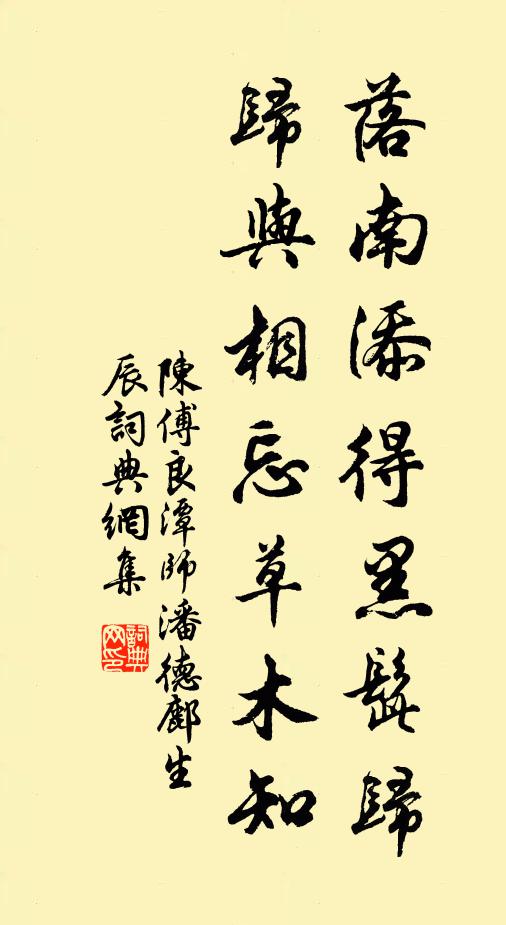 落南添得黑髭歸
歸與相忘草木知
陳傅良潭帥潘德鄜生
辰詞典網集
詞典網印